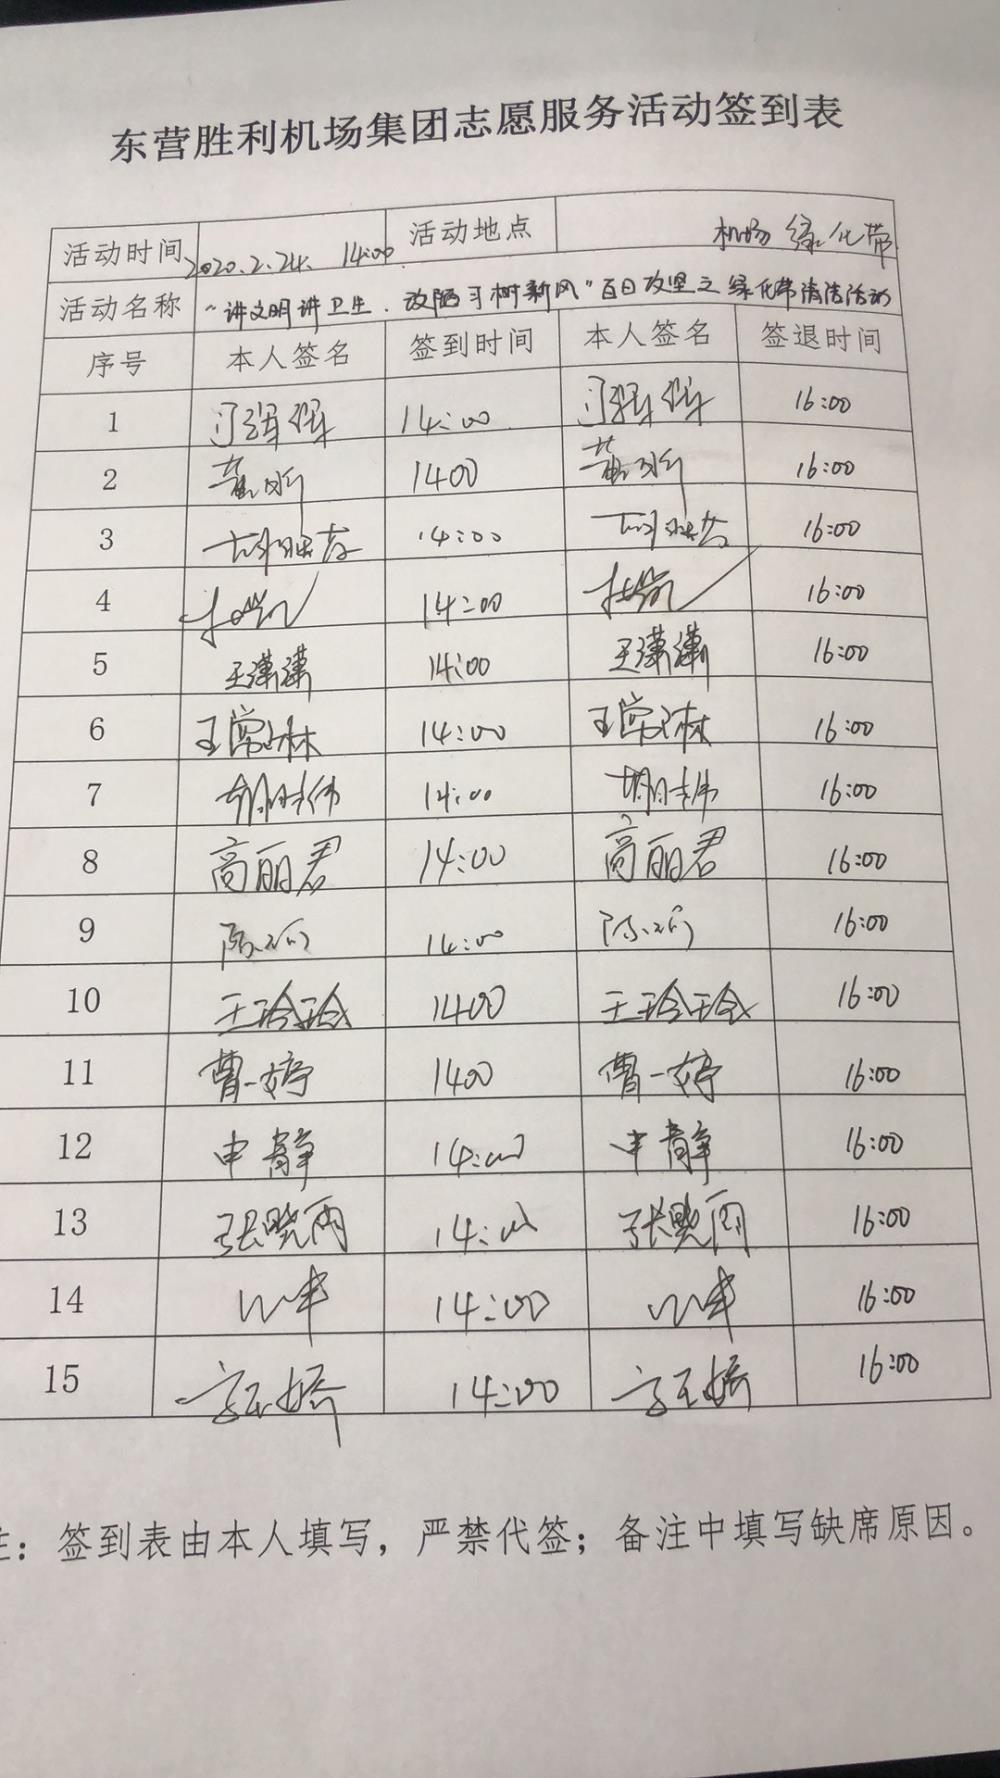 东营胜利机场集团志愿服务活动签到表
活动时间 2020.2.24. 14:00 活动地点 机场绿化带
活动名称 “讲文明讲卫生.改陋习树新风”百日攻坚之绿化带清洁活动
序号 本人签名 签到时间 本人签名 签退时间
1 14:00 16:00
2 1400 16:00
3 14:00 16:00
4 14:00 16:00
5 王潇潇 14:00 王潇潇 16:00
6 14:00 16:00
7 14:00 16:00
8 高丽君 14:00 高丽君 16:00
9 14:00 16:00
10 王玲玲 1400 王玲玲 16:00
11 曹一婷 1400 曹一婷 16:00
12 申静 14:00 申静 16:00
13 张晓雨 14:00 张晓雨 16:00
14 14:00 16:00
15 14:00 16:00
注：签到表由本人填写，严禁代签；备注中填写缺席原因。